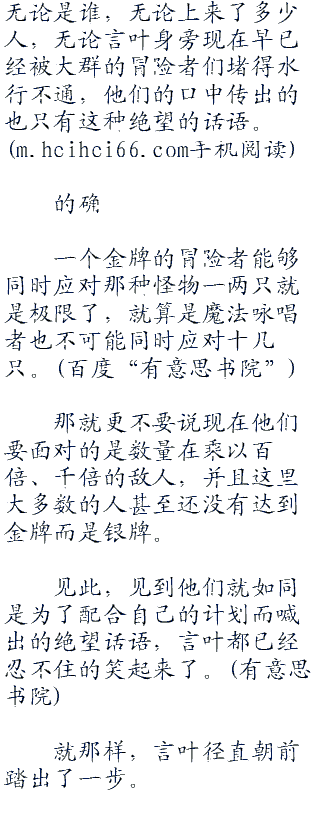 无论是谁，无论上来了多少
人，无论言叶身旁现在早已
经被大群的冒险者们堵得水
行不通，他们的口中传出的
也只有这种绝望的话语。
(m.hcihci66.com手机阅读)
的确
一个金牌的冒险者能够
同时应对那种怪物一两只就
是极限了，就算是魔法咏唱
者也不可能同时应对十几
只。(百度“有意思书院”)
那就更不要说现在他们
要面对的是数量在乘以百
倍、千倍的敌人，并且这里
大多数的人甚至还没有达到
金牌而是银牌。
见此，见到他们就如同
是为了配合自己的计划而喊
出的绝望话语，言叶都已经
忍不住的笑起来了。(有意思
书院)
就那样，言叶径直朝前
踏出了一步。